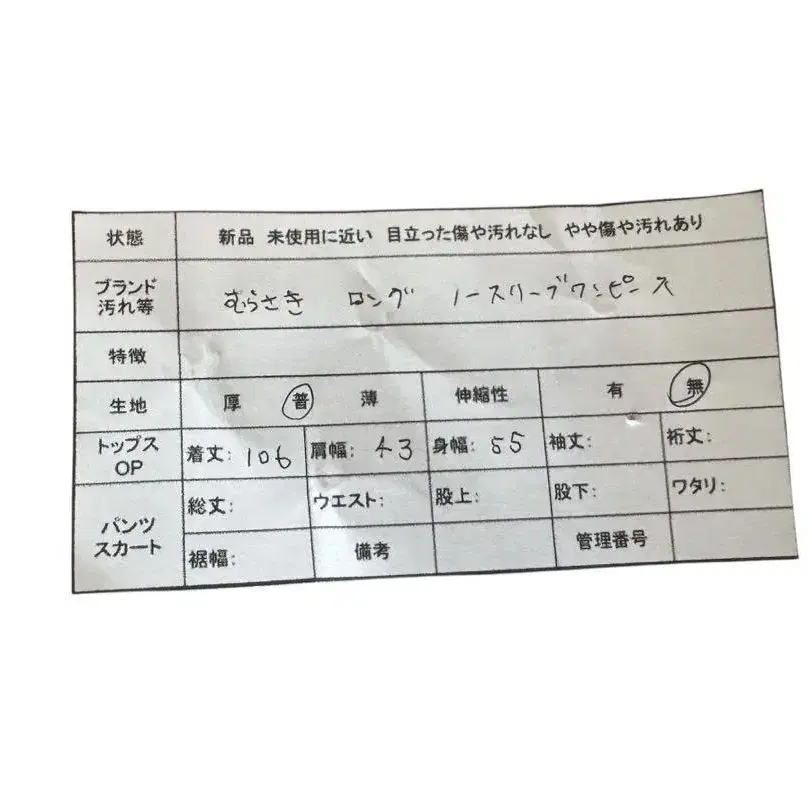 状態 新品 未使用に近い 目立った傷や汚れなし やや傷や汚れあり
ブランド
汚れ等 むらさき ロング ノースリーブワンピース
特徴
生地 厚 普 薄 伸縮性 有 無
トップス
OP 着丈: 106 肩幅: 43 身幅: 55 袖丈: 裄丈:
パンツ
スカート 総丈: ウエスト: 股上: 股下: ワタリ:
裾幅: 備考 管理番号